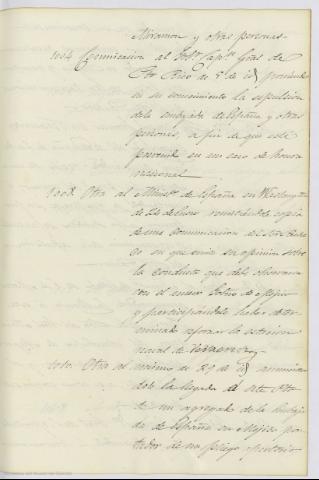 Miramon y otras personas.
1004 Comunicacion al Exmo. Capn. Gral de
Pto Rico de 5 de id poniendo
en su conocimiento la espulsion
del embajador de España y otras
personas, a fin de que esté
prevenido en un caso de honra
nacional
Otra al Ministro de España en Washington
de 24 de Enero remitiendole copia
de una comunicacion
en que emite su opinion sobre
la conducta que debe observarse
con el nuevo Gobno de Mejico
y participandole haber deter-
minado reforzar la estacion
naval de Veracruz
1010. Otra al mismo de 29 de id anuncian-
dole la llegada
de un agregado de la Embaja-
da de España en Mejico por-
tador de un pliego